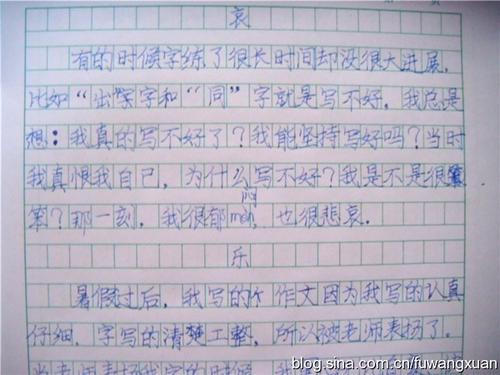 哀
有的时候字练了很长时间却没很大进展，
比如“出”字和“同”字就是写不好。我总是
想：我真的写不好了？我能坚持写好吗？当时
我真恨我自己，为什么写不好？我是不是很笨
笨？那一刻，我很郁闷mèn，也很悲哀。
乐
暑假过后，我写的个作文因为我写的认真
仔细，字写的清楚工整，所以被老师表扬了。
blog.sina.com.cn/fuwangxuan